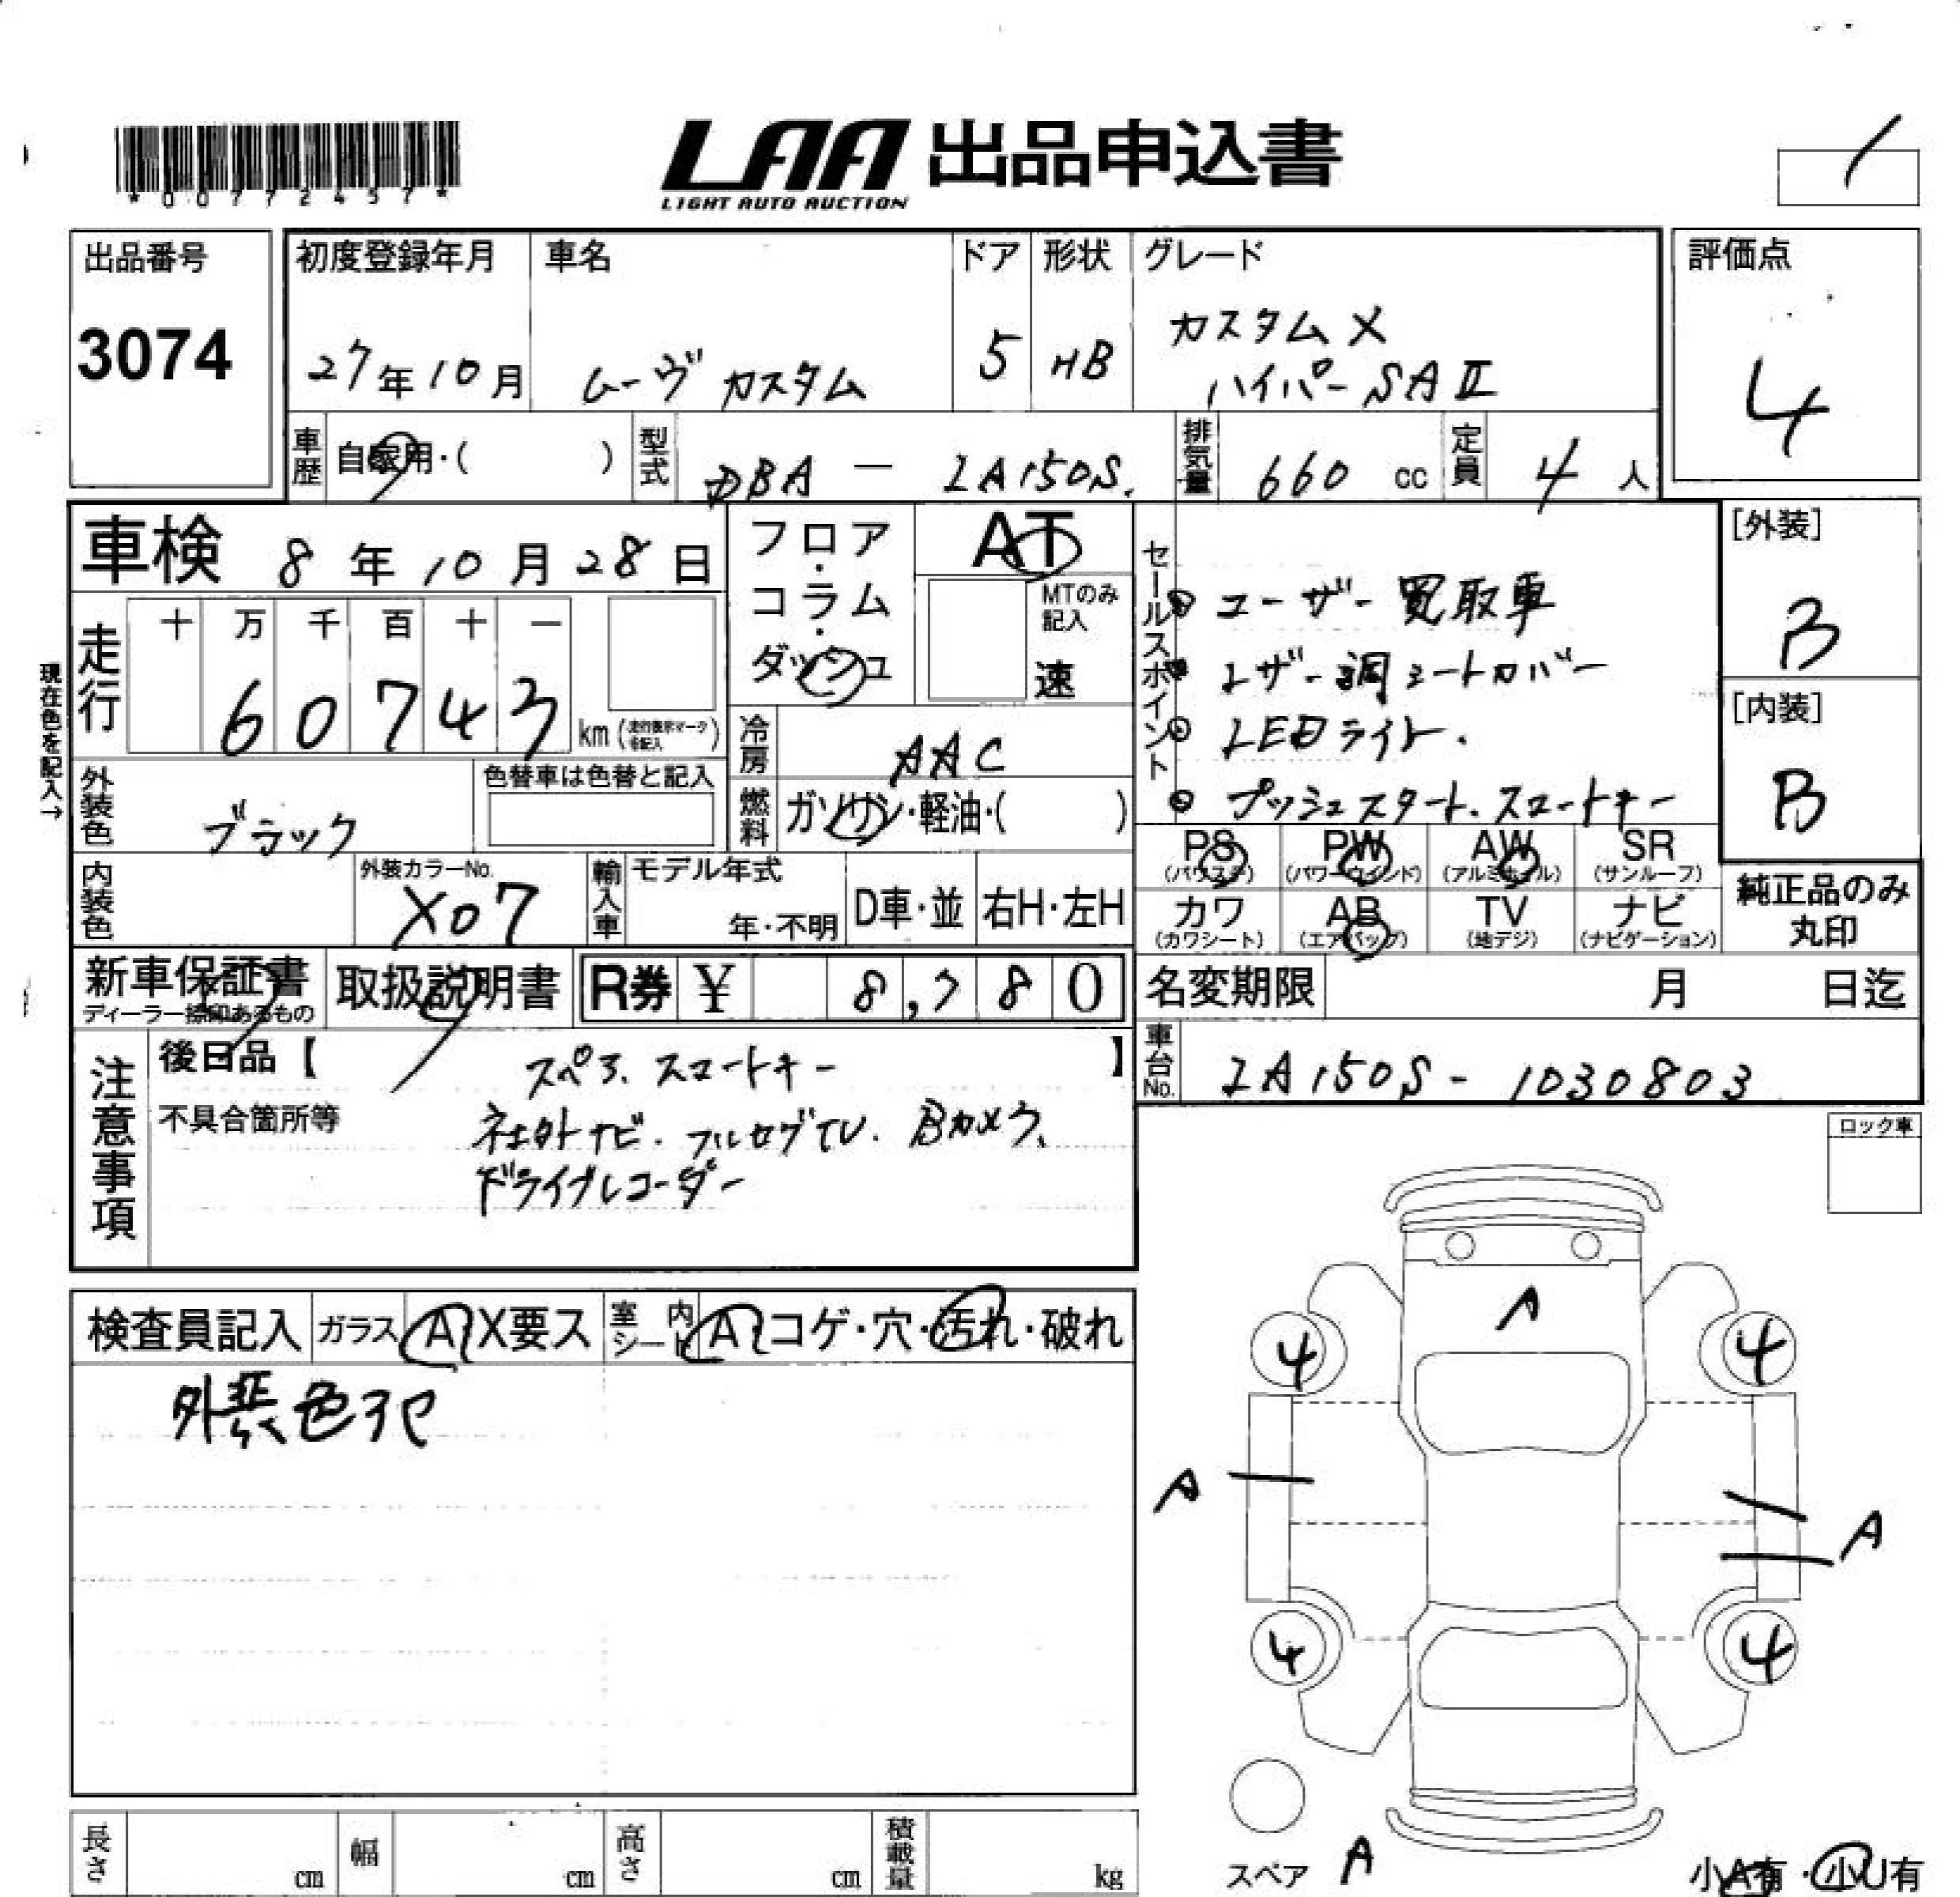 *00772457*
LAA 出品申込書
LIGHT AUTO AUCTION
出品番号
3074
初度登録年月
27年10月
車名
ムーヴ カスタム
ドア
5
形状
HB
グレード
カスタム X
ハイパー SA II
評価点
4
車歴
自家用・( )
型式
DBA - LA150S
排気量
660 cc
定員
4 人
車検 8年10月28日
フロア・コラム・ダッシュ
AT
MTのみ記入
速
走行
十 万 千 百 十 一
60743
km
現在色を記入→
冷房
AAC
燃料
ガソリン・軽油・( )
外装色
ブラック
色替車は色替と記入
内装色
外装カラーNo.
X07
輸入車
モデル年式
年・不明
D車・並
右H・左H
セールスポイント
ユーザー買取車
レザー調シートカバー
LEDライト.
プッシュスタート.スマートキー
[外装]
B
[内装]
B
PS (パワステ)
PW (パワーウィンド)
AW (アルミホイル)
SR (サンルーフ)
カワ (カワシート)
AB (エアバッグ)
TV (地デジ)
ナビ (ナビゲーション)
純正品のみ
丸印
新車保証書
ディーラー捺印あるもの
取扱説明書
R券 ¥ 8,780
名変期限 月 日迄
車台No.
LA150S - 1030803
注意事項
後日品【 スペア. スマートキー 】
不具合箇所等
社外ナビ. フルセグTV. Bカメラ.
ドライブレコーダー
ロック車
検査員記入
ガラス A X要ス
室内シート A コゲ・穴・汚れ・破れ
外装色
A
4
4
A
A
4
4
スペア
A
小A有・小U有
長さ cm
幅 cm
高さ cm
積載量 kg